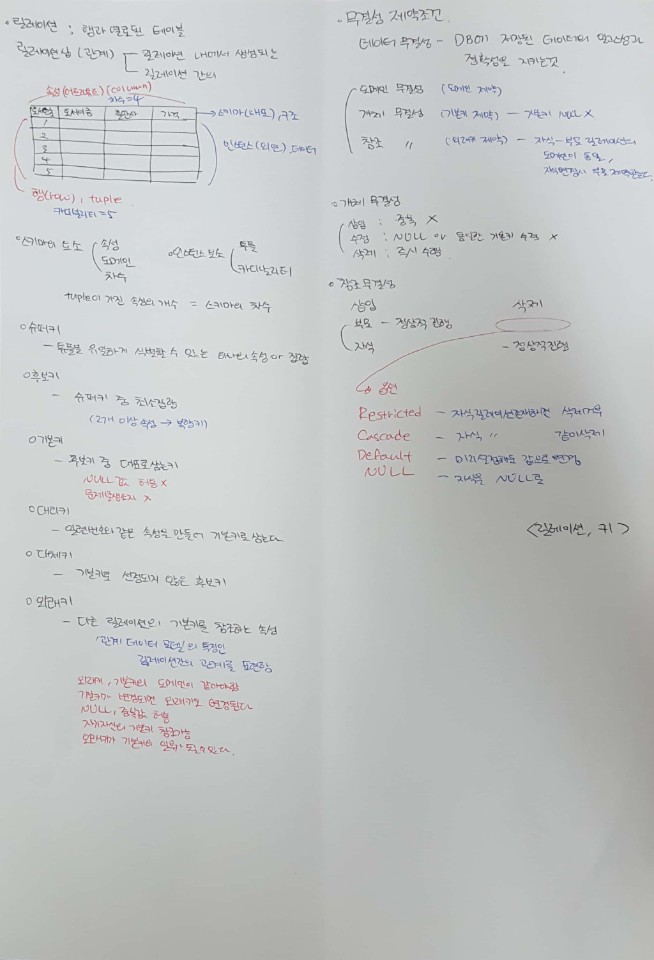 릴레이션 : 행과 열로된 테이블
릴레이션십 (관계) 릴레이션 내에서 생성되는
릴레이션 간의
속성 (어트리뷰트) (column)
차수=4
도서번호 도서이름 출판사 가격 → 스키마(내포), 구조
1
2
3
4
5
인스턴스(외연), 데이터
행(row), tuple
카디널리티=5
스키마의 요소 속성
도메인
차수
인스턴스 요소 튜플
카디널리티
tuple이 가진 속성의 개수 = 스키마의 차수
슈퍼키
- 튜플을 유일하게 식별할 수 있는 하나의 속성 or 집합
후보키
- 슈퍼키 중 최소집합
(2개 이상 속성 → 복합키)
기본키
- 후보키 중 대표로 삼는키
NULL값 허용 x
문제발생소지 x
대리키
- 일련번호와 같은 속성을 만들어 기본키로 삼는다
대체키
- 기본키로 선정되지 않은 후보키
외래키
- 다른 릴레이션의 기본키를 참조하는 속성
'관계 데이터 모델'의 특징인
릴레이션간의 관계를 표현함
외래키, 기본키의 도메인이 같아야함
기본키가 변경되면 외래키도 변경된다
NULL, 중복값 허용
자기자신의 기본키 참조가능
외래키가 기본키의 일부가 될수있다.
무결성 제약조건
데이터 무결성 - DB에 저장된 데이터의 일관성과
정확성을 지키는것
도메인 무결성 (도메인 제약)
개체 무결성 (기본키 제약) - 기본키 NULL X
참조 〃 (외래키 제약) - 자식-부모 릴레이션의
도메인이 동일,
개체 무결성
삽입 : 중복 X
수정 : NULL or 동일한 기본키 수정 x
삭제 : 즉시 수행
참조무결성
삽입 삭제
부모 - 정상적 진행
자식 - 정상진행
옵션
Restricted - 자식릴레이션존재하면 삭제거부
Cascade - 자식 〃 같이삭제
Default - 미리설정해둔 값으로 변경
NULL - 자식을 NULL로
<릴레이션, 키>